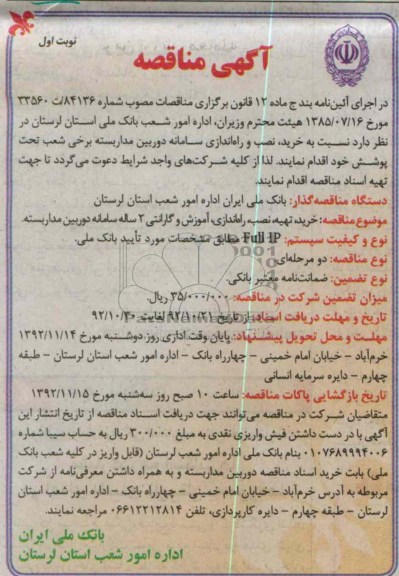 نوبت اول
آگهی مناقصه
در اجرای آئین‌نامه بند ج ماده ۱۲ قانون برگزاری مناقصات مصوب شماره ۸۴۱۳۶/ت ۳۳۵۶۰
مورخ ۱۳۸۵/۰۷/۱۶ هیئت محترم وزیران، اداره امور شعب بانک ملی استان لرستان در
نظر دارد نسبت به خرید، نصب و راه‌اندازی سامانه دوربین مداربسته برخی شعب تحت
پوشش خود اقدام نمایند. لذا از کلیه شرکت‌های واجد شرایط دعوت می‌گردد تا جهت
تهیه اسناد مناقصه اقدام نمایند.
دستگاه مناقصه‌گذار: بانک ملی ایران اداره امور شعب استان لرستان
موضوع مناقصه: خرید، تهیه، نصب، راه‌اندازی، آموزش و گارانتی ۲ ساله سامانه دوربین مداربسته.
نوع و کیفیت سیستم: Full IP مطابق مشخصات مورد تأیید بانک ملی.
نوع مناقصه: دو مرحله‌ای
نوع تضمین: ضمانت‌نامه معتبر بانکی.
میزان تضمین شرکت در مناقصه: ۳۵/۰۰۰/۰۰۰ ریال.
تاریخ و مهلت دریافت اسناد: از تاریخ ۹۲/۱۰/۲۱ لغایت ۹۲/۱۰/۳۰
مهلت و محل تحویل پیشنهاد: پایان وقت اداری روز دوشنبه مورخ ۱۳۹۲/۱۱/۱۴
خرم‌آباد – خیابان امام خمینی – چهارراه بانک – اداره امور شعب استان لرستان – طبقه
چهارم – دایره سرمایه انسانی
تاریخ بازگشایی پاکات مناقصه: ساعت ۱۰ صبح روز سه‌شنبه مورخ ۱۳۹۲/۱۱/۱۵
متقاضیان شرکت در مناقصه می‌توانند جهت دریافت اسناد مناقصه از تاریخ انتشار این
آگهی با در دست داشتن فیش واریزی نقدی به مبلغ ۳۰۰/۰۰۰ ریال به حساب سیبا شماره
۰۱۰۷۶۸۹۹۹۴۰۰۶ بنام بانک ملی اداره امور شعب لرستان (قابل واریز در کلیه شعب بانک
ملی) بابت خرید اسناد مناقصه دوربین مداربسته و به همراه داشتن معرفی‌نامه از شرکت
مربوطه به آدرس خرم‌آباد – خیابان امام خمینی – چهارراه بانک – اداره امور شعب استان
لرستان – طبقه چهارم – دایره کارپردازی، تلفن ۰۶۶۱۲۲۱۲۸۱۴ مراجعه نمایند.
بانک ملی ایران
اداره امور شعب استان لرستان